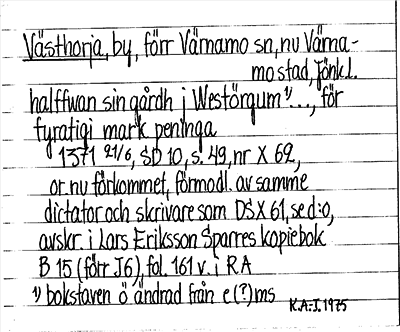 Västhorja, by, förr Värnamo sn, nu Värna-
mo stad, Jönk.l.
halffwan sin gårdh j Westörgum ¹⁾..., för
fyratigi mark peninga
1371 21/6, SD 10, s. 49, nr X 62,
or. nu förkommet, förmodl. av samme
dictator och skrivare som DS X 61, se d:o,
avskr. i Lars Eriksson Sparres kopiebok
B 15 (förr J6), fol. 161 v. i RA
¹⁾ bokstaven ö ändrad från e (?) ms
K.A.-J. 1975